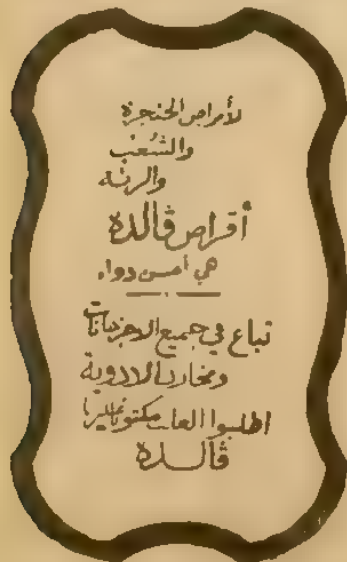 لأمراض الحنجرة
والشُعَب
والرئة
أقراص ڤالدة
هي أحسن دواء
تباع في جميع الاجزخانات
ومخازن الادوية
اطلبوا العلب مكتوبا عليها
ڤالدة